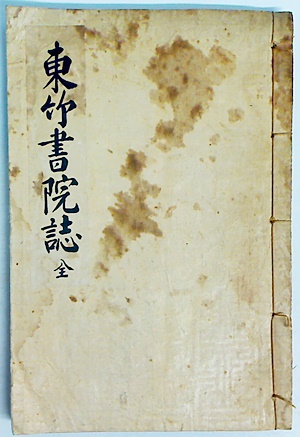 東竹書院誌 全